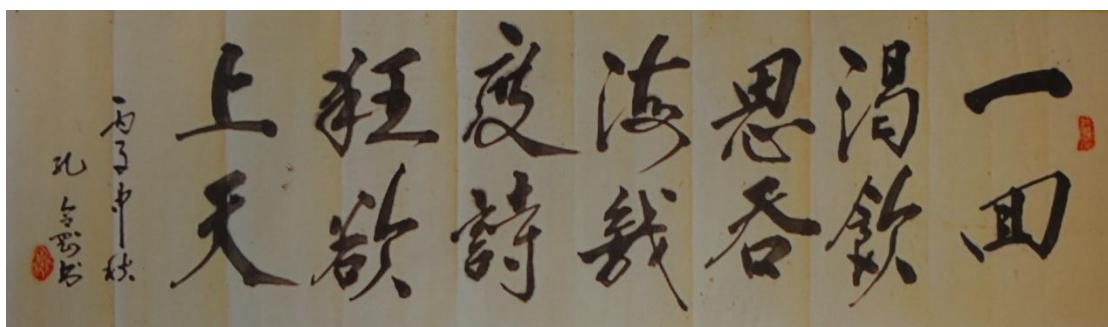 一回
渴飲
思吞
海幾
度詩
狂欲
上天
丙子中秋
孔